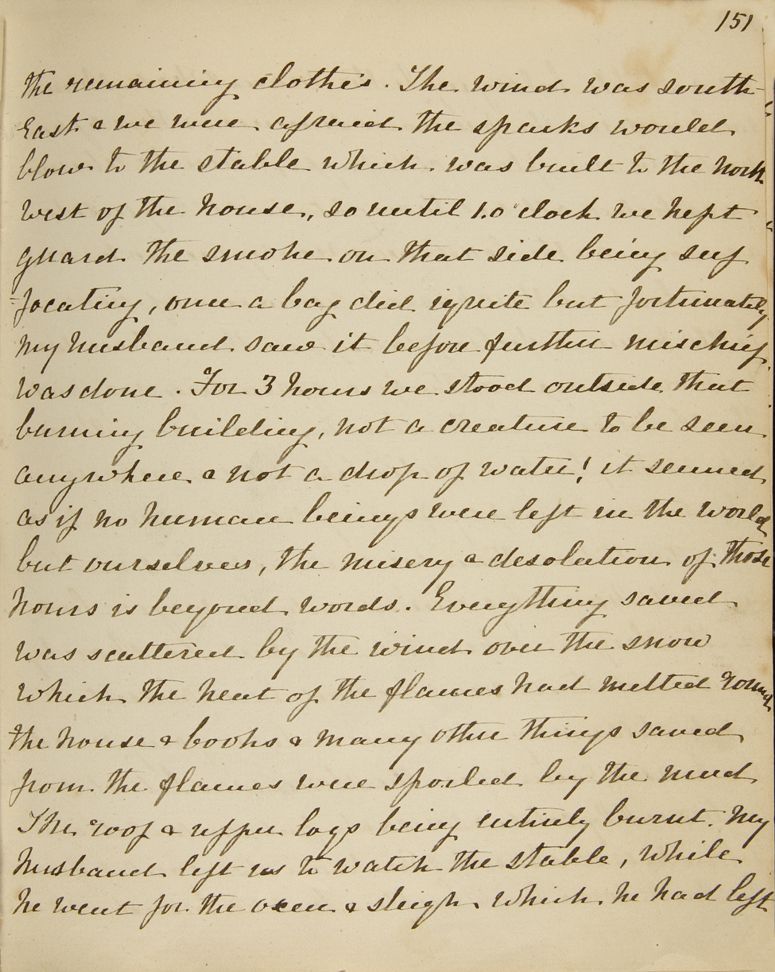 151
the remaining clothes. The wind was south-
East & we were afraid the sparks would
blow to the stable which was built to the North
West of the house, so until 1.o'clock we kept
guard the smoke on that side being suf
=focating, once a bag did ignite but fortunately
my husband saw it before further mischief
was done. For 3 hours we stood outside that
burning building, not a creature to be seen
anywhere & not a drop of water! it seemed
as if no human beings were left in the world
but ourselves, the misery & desolation of those
hours is beyond words. Everything saved
was scattered by the wind over the snow
which the heat of the flames had melted round
the house & books & many other things saved
from the flames were spoiled by the mud
The roof & upper logs being entirely burnt. My
husband left us to watch the stable, while
he went for the oxen & sleigh which he had left